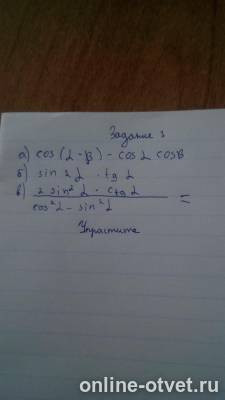 Задание 3
а) cos (α - β) - cos α cos β
б) sin 2 α · tg α
в) 2 sin² α · ctg α =
cos² α - sin² α
Упростите
online-otvet.ru